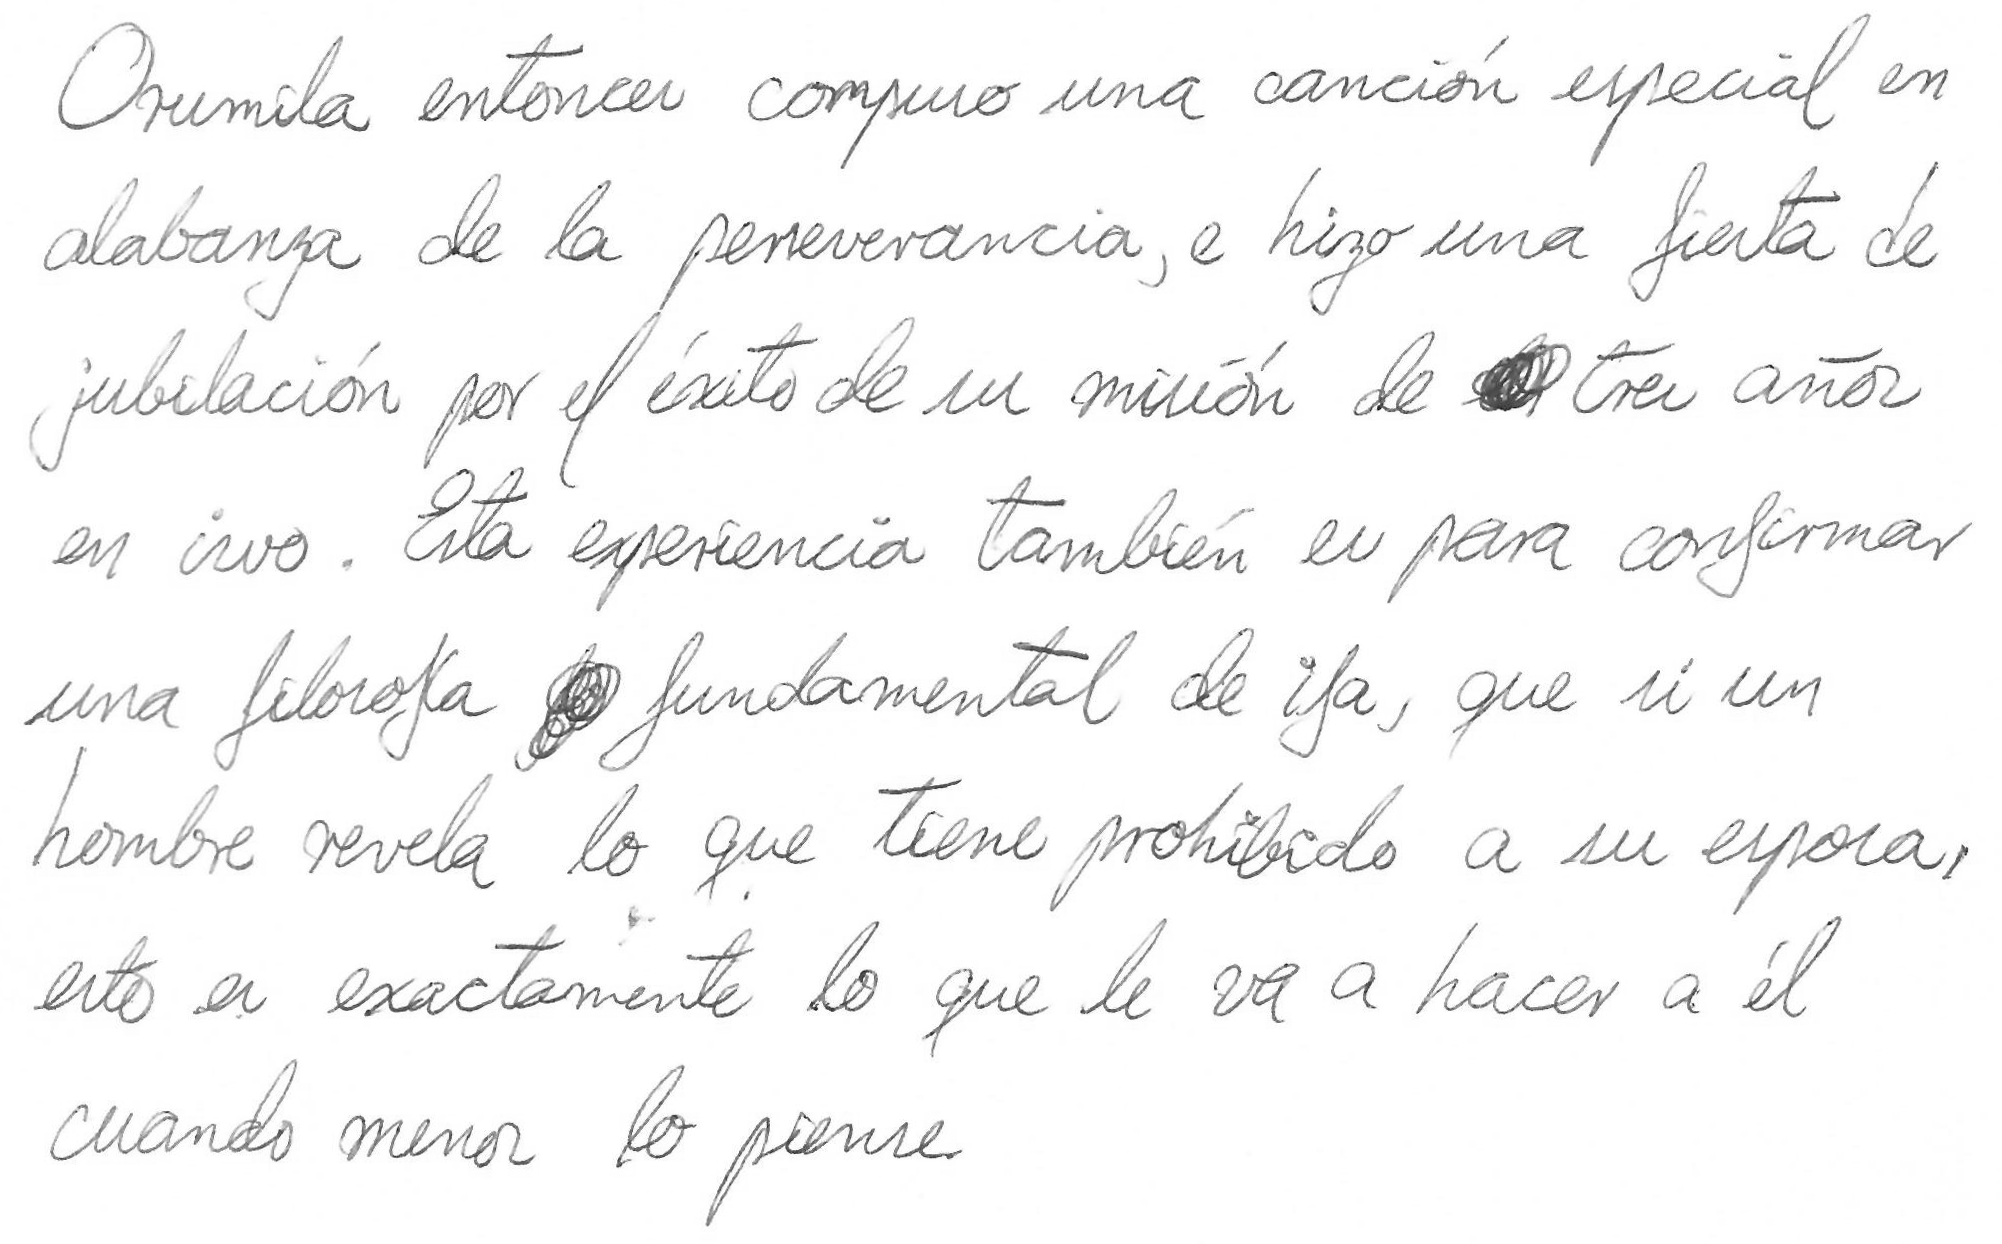 Orumila entonces compuso una canción especial en
alabanza de la perseverancia, e hizo una fiesta de
jubilación por el éxito de su misión de tres años
en iwo. Esta experiencia también es para confirmar
una filosofía fundamental de ifa, que si un
hombre revela lo que tiene prohibido a su esposa,
esto es exactamente lo que le va a hacer a él
cuando menos lo piense.